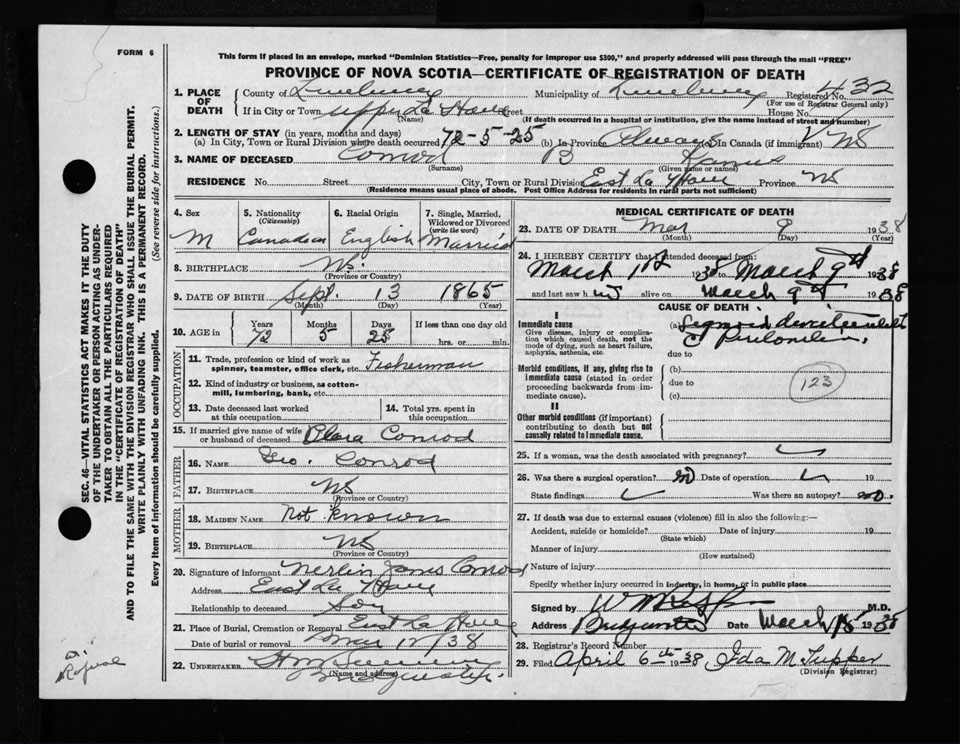 FORM 6
This form if placed in an envelope, marked "Dominion Statistics—Free, penalty for improper use $300," and properly addressed will pass through the mail "FREE"
PROVINCE OF NOVA SCOTIA—CERTIFICATE OF REGISTRATION OF DEATH
1. PLACE OF DEATH
County of Lunenburg Municipality of Lunenburg Registered No. 432
(For use of Registrar General only)
If in City or Town Upper La Have Street House No.
(Name) (If death occurred in a hospital or institution, give the name instead of street and number)
2. LENGTH OF STAY (in years, months and days)
(a) In City, Town or Rural Division where death occurred 72-5-25 (b) In Province Always (c) In Canada (if immigrant) NS
3. NAME OF DECEASED Conrod B
(Surname) (Given name or names)
RESIDENCE No. Street City, Town or Rural Division East La Have Province NS
(Residence means usual place of abode. Post Office Address for residents in rural parts not sufficient)
4. Sex M
5. Nationality (Citizenship) Canadian
6. Racial Origin English
7. Single, Married, Widowed or Divorced (write the word) Married
8. BIRTHPLACE NS.
(Province or Country)
9. DATE OF BIRTH Sept. 13 1865
(Month) (Day) (Year)
10. AGE in Years Months Days If less than one day old
72 5 25 hrs. or min.
OCCUPATION
11. Trade, profession or kind of work as spinner, teamster, office clerk, etc. Fisherman
12. Kind of industry or business, as cotton-mill, lumbering, bank, etc.
13. Date deceased last worked at this occupation
14. Total yrs. spent in this occupation
15. If married give name of wife or husband of deceased Clara Conrod
FATHER
16. NAME Geo. Conrod
17. BIRTHPLACE NS
(Province or Country)
MOTHER
18. MAIDEN NAME Not Known
19. BIRTHPLACE NS
(Province or Country)
20. Signature of informant Merlin James Conrod
Address East La Have
Relationship to deceased Son
21. Place of Burial, Cremation or Removal East La Have
Date of burial or removal Mar 12/38
22. UNDERTAKER
(Name and address)
MEDICAL CERTIFICATE OF DEATH
23. DATE OF DEATH Mar 9 1938
(Month) (Day) (Year)
24. I HEREBY CERTIFY that I attended deceased from:
March 1st 1938 to March 9th 1938
and last saw him alive on March 9th 1938
CAUSE OF DEATH
I
Immediate cause
Give disease, injury or complication which caused death, not the mode of dying, such as heart failure, asphyxia, asthenia, etc.
(a) Sigmoid
due to
Morbid conditions, if any, giving rise to immediate cause (stated in order proceeding backwards from immediate cause).
(b)
due to
(c)
123
II
Other morbid conditions (if important) contributing to death but not causally related to immediate cause.
25. If a woman, was the death associated with pregnancy?
26. Was there a surgical operation? no Date of operation 19
State findings Was there an autopsy? no.
27. If death was due to external causes (violence) fill in also the following:—
Accident, suicide or homicide? Date of injury 19
(State which)
Manner of injury
(How sustained)
Nature of injury
Specify whether injury occurred in industry, in home, or in public place
Signed by M.D.
Address Bridgewater Date March 15 1938
28. Registrar's Record Number
29. Filed April 6th 1938 Ida M. Tupper
(Division Registrar)
SEC. 46—VITAL STATISTICS ACT MAKES IT THE DUTY
OF THE UNDERTAKER OR PERSON ACTING AS UNDER-
TAKER TO OBTAIN ALL THE PARTICULARS REQUIRED
IN THE "CERTIFICATE OF REGISTRATION OF DEATH"
AND TO FILE THE SAME WITH THE DIVISION REGISTRAR WHO SHALL ISSUE THE BURIAL PERMIT.
WRITE PLAINLY WITH UNFADING INK. THIS IS A PERMANENT RECORD.
Every item of information should be carefully supplied. (See reverse side for instructions.)